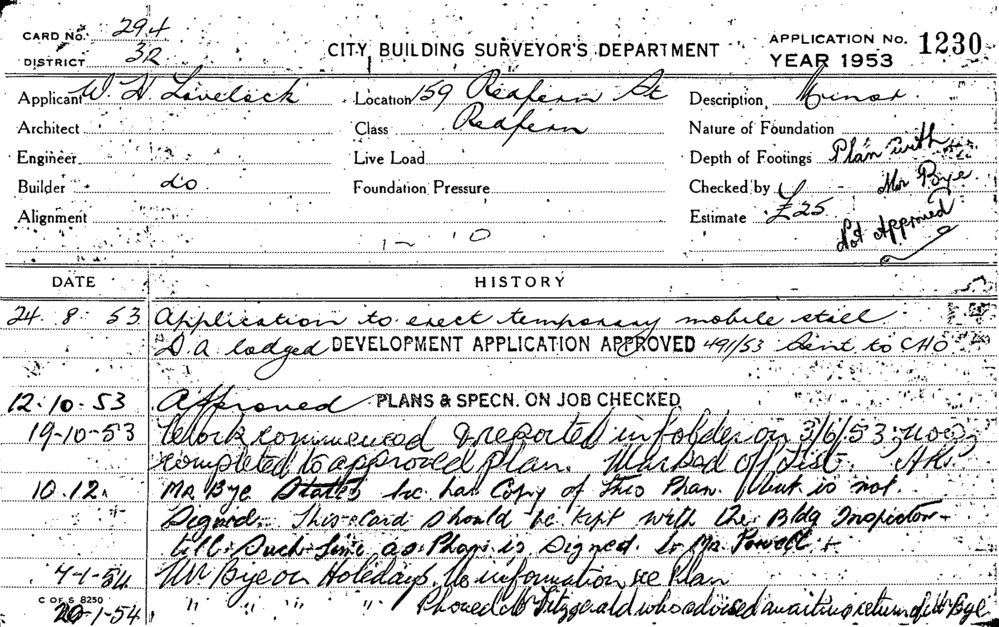 CARD No. 294
DISTRICT 32
CITY BUILDING SURVEYOR'S DEPARTMENT
APPLICATION No. 1230
YEAR 1953
Applicant W. H. Lovelock
Location 159 Redfern St
Description Minor.
Architect
Class Redfern
Nature of Foundation
Engineer
Live Load
Depth of Footings Plan with
Builder do
Foundation Pressure
Checked by Mr Bye.
Alignment
Estimate £25
Not Approved
DATE HISTORY
24. 8. 53 Application to erect temporary mobile stall
D.A. lodged DEVELOPMENT APPLICATION APPROVED 491/53 Sent to CHO
12.10.53 Approved PLANS & SPECN. ON JOB CHECKED
19-10-53 Work commenced & reported in folder on 3/6/53 now
completed to approved plan. Marked off List.
10.12. Mr Bye States he has Copy of this Plan but is not
Signed. This card should be kept with the Bldg Inspector
till such time as Plan is signed. Mr. Powell
7-1-54 Mr Bye on Holidays. No information re Plan
C OF S 8250
20-1-54 " " " " Phoned Mr Fitzgerald who advised awaiting return of Mr Bye